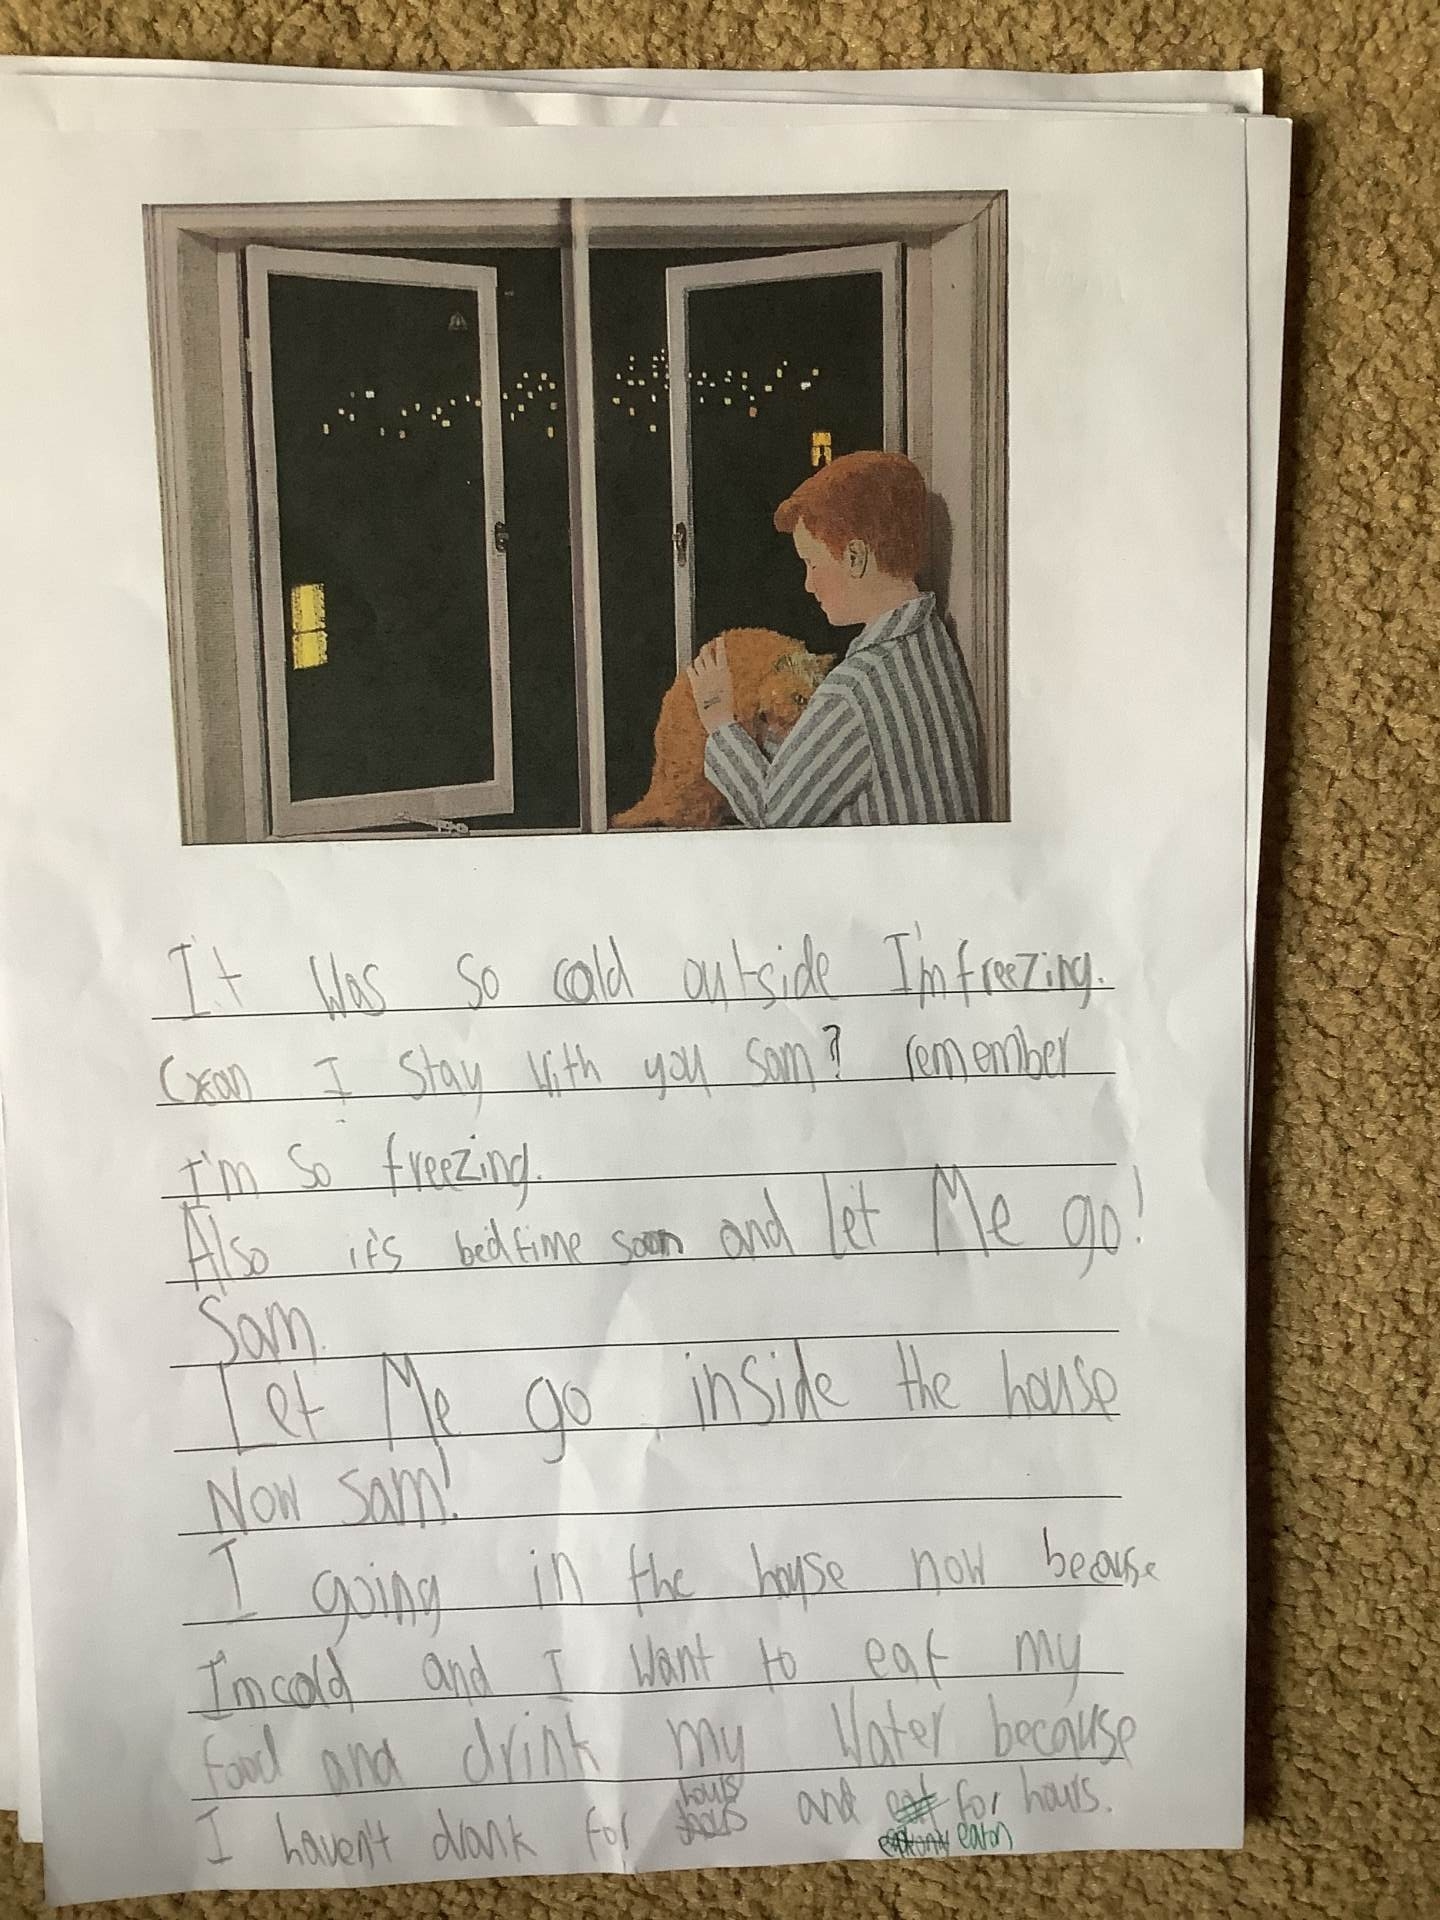 It was so cold outside I'm freezing.
Can I stay with you Sam? remember
I'm so freezing.
Also it's bedtime soon and let Me go!
Sam.
Let Me go inside the house
Now Sam!
I going in the house now because
I'm cold and I want to eat my
food and drink my Water because
I haven't drank for hours and eaton for hours.